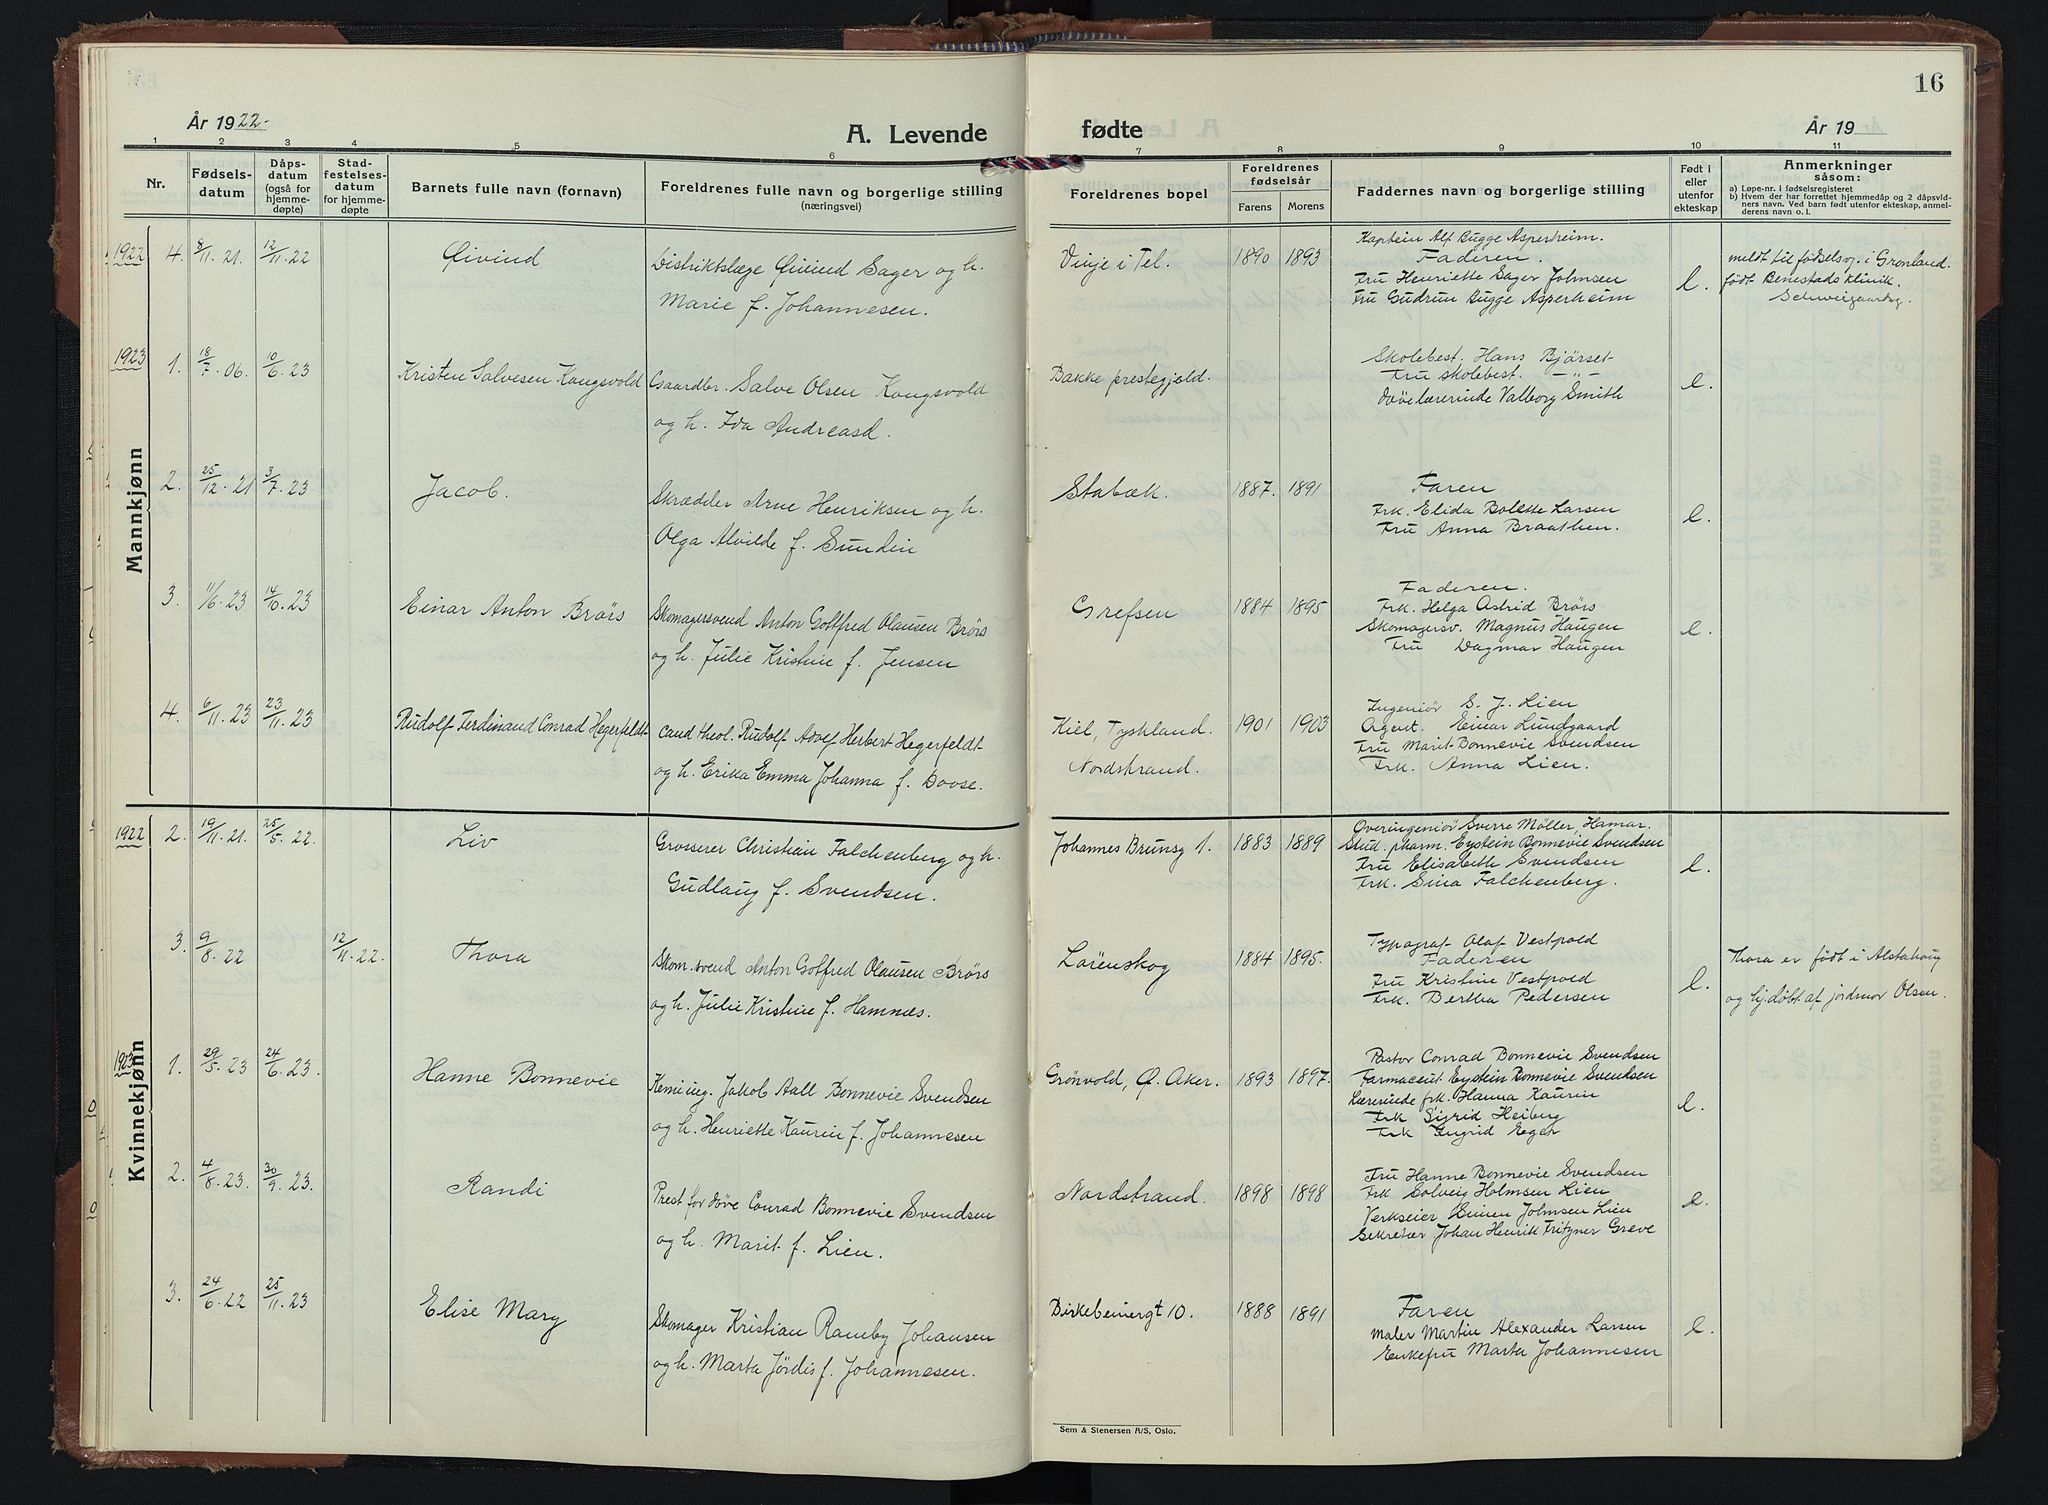 16
År 1922-
A. Levende
fødte
År 19
1 2 3 4 5 6 7 8 9 10 11
Nr.
Fødselsdatum
Dåpsdatum (også for hjemmedøpte)
Stadfestelsesdatum for hjemmedøpte
Barnets fulle navn (fornavn)
Foreldrenes fulle navn og borgerlige stilling
(næringsvei)
Foreldrenes bopel
Foreldrenes fødselsår
Farens Morens
Faddernes navn og borgerlige stilling
Født i eller utenfor ekteskap
Anmerkninger
såsom:
a) Løpe-nr. i fødselsregisteret
b) Hvem der har forrettet hjemmedåp og 2 dåpsvidners navn. Ved barn født utenfor ekteskap, anmelderens navn o. l.
Mannkjønn
1922 4. 8/11. 21. 12/11. 22 Øivind
Distriktslæge Øivind Sager og h.
Marie f. Johannesen.
Vinje i Tel. 1890 1893
Kaptein Alf Bugge Asperheim.
Faderen.
Fru Henriette Sager Johnsen
Fru Gudrun Bugge Asperheim
meldt til fødselsop. i Grønland.
født Benestads Klinik.
Schweigaardsg.
1923 1. 18/7. 06. 10/6. 23 Kristen Salvesen Kongsvold
Gaardbr. Salve Olsen Kongsvold
og h. Ida Andreasd.
Bakke prestegjeld.
Skolebest. Hans Bjørset
Fru skolebest. -"-
Døvelærerinde Valborg Smith
2. 25/12. 21 3/7. 23 Jacob.
Skrædder Arne Henriksen og h.
Olga Alvilde f. Sundin
Stabæk. 1887. 1891
Faren
Frk. Elida Bolette Larsen
Fru Anna Braathen.
3. 11/6. 23 14/10. 23 Einar Anton Brørs
Skomagersvend Anton Gottfred Olausen Brørs
og h. Julie Kristine f. Jensen
Grefsen 1884 1895
Faderen.
Frk. Helga Astrid Brørs
Skomagersv. Magnus Haugen
Fru Dagmar Haugen
4. 6/11. 23 23/11. 23 Rudolf Ferdinand Conrad Hegerfeldt
cand theol. Rudolf Adolf Herbert Hegerfeldt
og h. Erika Emma Johanna f. Doose.
Kiel, Tyskland.
Nordstrand.
1901 1903
Ingeniør S. J. Lien
Agent. Einar Lundgaard
Fru Marit Bonnevie Svendsen
Frk. Anna Lien.
Kvinnekjønn
1922 2. 19/11. 21. 25/5. 22. Liv
Grosserer Christian Falchenberg og h.
Gudlaug f. Svendsen.
Johannes Brunsg 1. 1883 1889
Overingeniør Sverre Møller, Hamar.
Stud. pharm. Eystein Bonnevie Svendsen
Fru Elisabeth Svendsen
Frk. Sina Falchenberg.
3. 9/8. 22 12/11. 22. Thora
Skom.svend Anton Gotfred Olausen Brørs
og h. Julie Kristine f. Hamnæs.
Lørenskog 1884 1895.
Typograf Olaf Vestvold
Faderen
Fru Kristine Vestvold
Frk. Bertha Pedersen
Thora er født i Alstahoug
og hj.døbt af jordmor Olsen.
1923 1. 29/5. 23 24/6. 23. Hanne Bonnevie
Kemiing. Jakob Aall Bonnevie Svendsen
og h. Henriette Kaurin f. Johannesen
Grønvold, Ø. Aker. 1893 1897.
Pastor Conrad Bonnevie Svendsen
Farmaceut. Eystein Bonnevie Svendsen
Lærerinde frk. Hanna Kaurin
Frk Sigrid Heiberg
Frk Ingrid Eger
2. 4/8. 23. 30/9. 23. Randi
Prest for døve Conrad Bonnevie Svendsen
og h. Marit f. Lien.
Nordstrand. 1898 1898
Fru Hanne Bonnevie Svendsen
Frk Solveig Holmsen Lien
Verkseier Simen Johnsen Lien
Sekretær Johan Henrik Fritzner Greve
3. 24/6. 22 25/11. 23 Elise Mary
Skomager Kristian Ramby Johansen
og h. Marta Jørdis f. Johannesen.
Birkebeinergt 10. 1888 1891
Faren
Maler Martin Alexander Larsen
Enkefru Marta Johannesen
Sem & Stenersen A/S, Oslo.